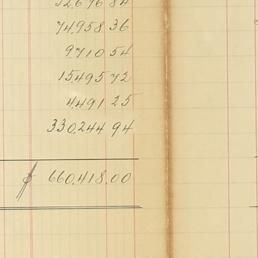 74,958 36
9,710 54
15,495 72
4,491 25
330,244 94
$ 660,418.00